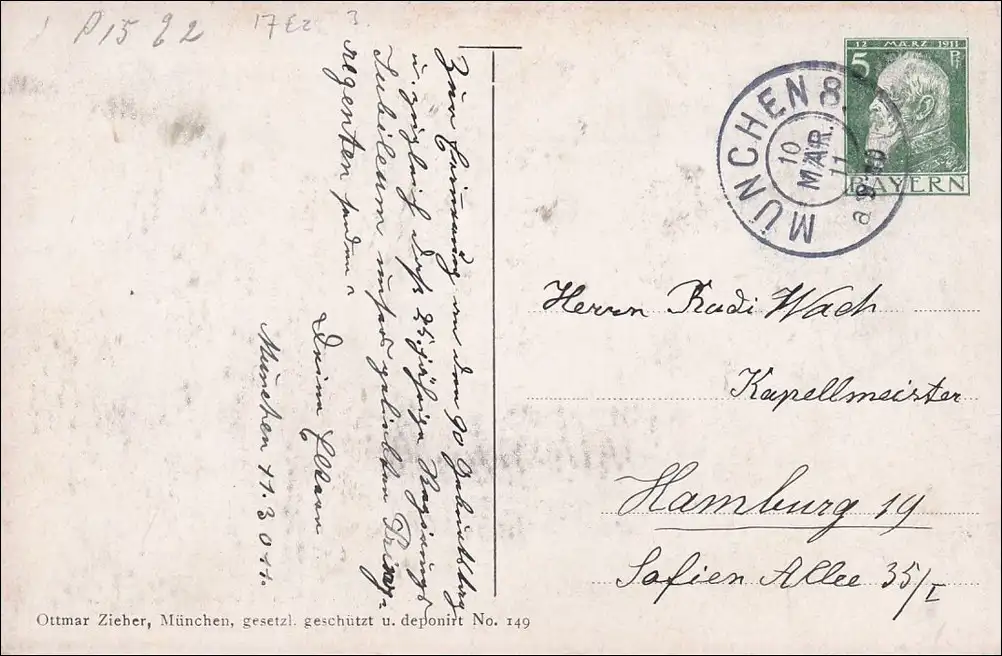 P15 E2
17 E2 3.
Zur Erinnerung an den 90 Geburtstag
u. zugleich das 25 jährige Regierungs
Jubiläum unsres geliebten Prinz-
regenten senden
Deine Eltern
München 11. 3. 011.
12 MÄRZ 1911
5 Pf
BAYERN
MÜNCHEN 8.
10
MAR.
11
a 9-10
Herrn Rudi Wach
Kapellmeister
Hamburg 19
Sofien Allee 35/I
Ottmar Zieher, München, gesetzl. geschützt u. deponirt No. 149